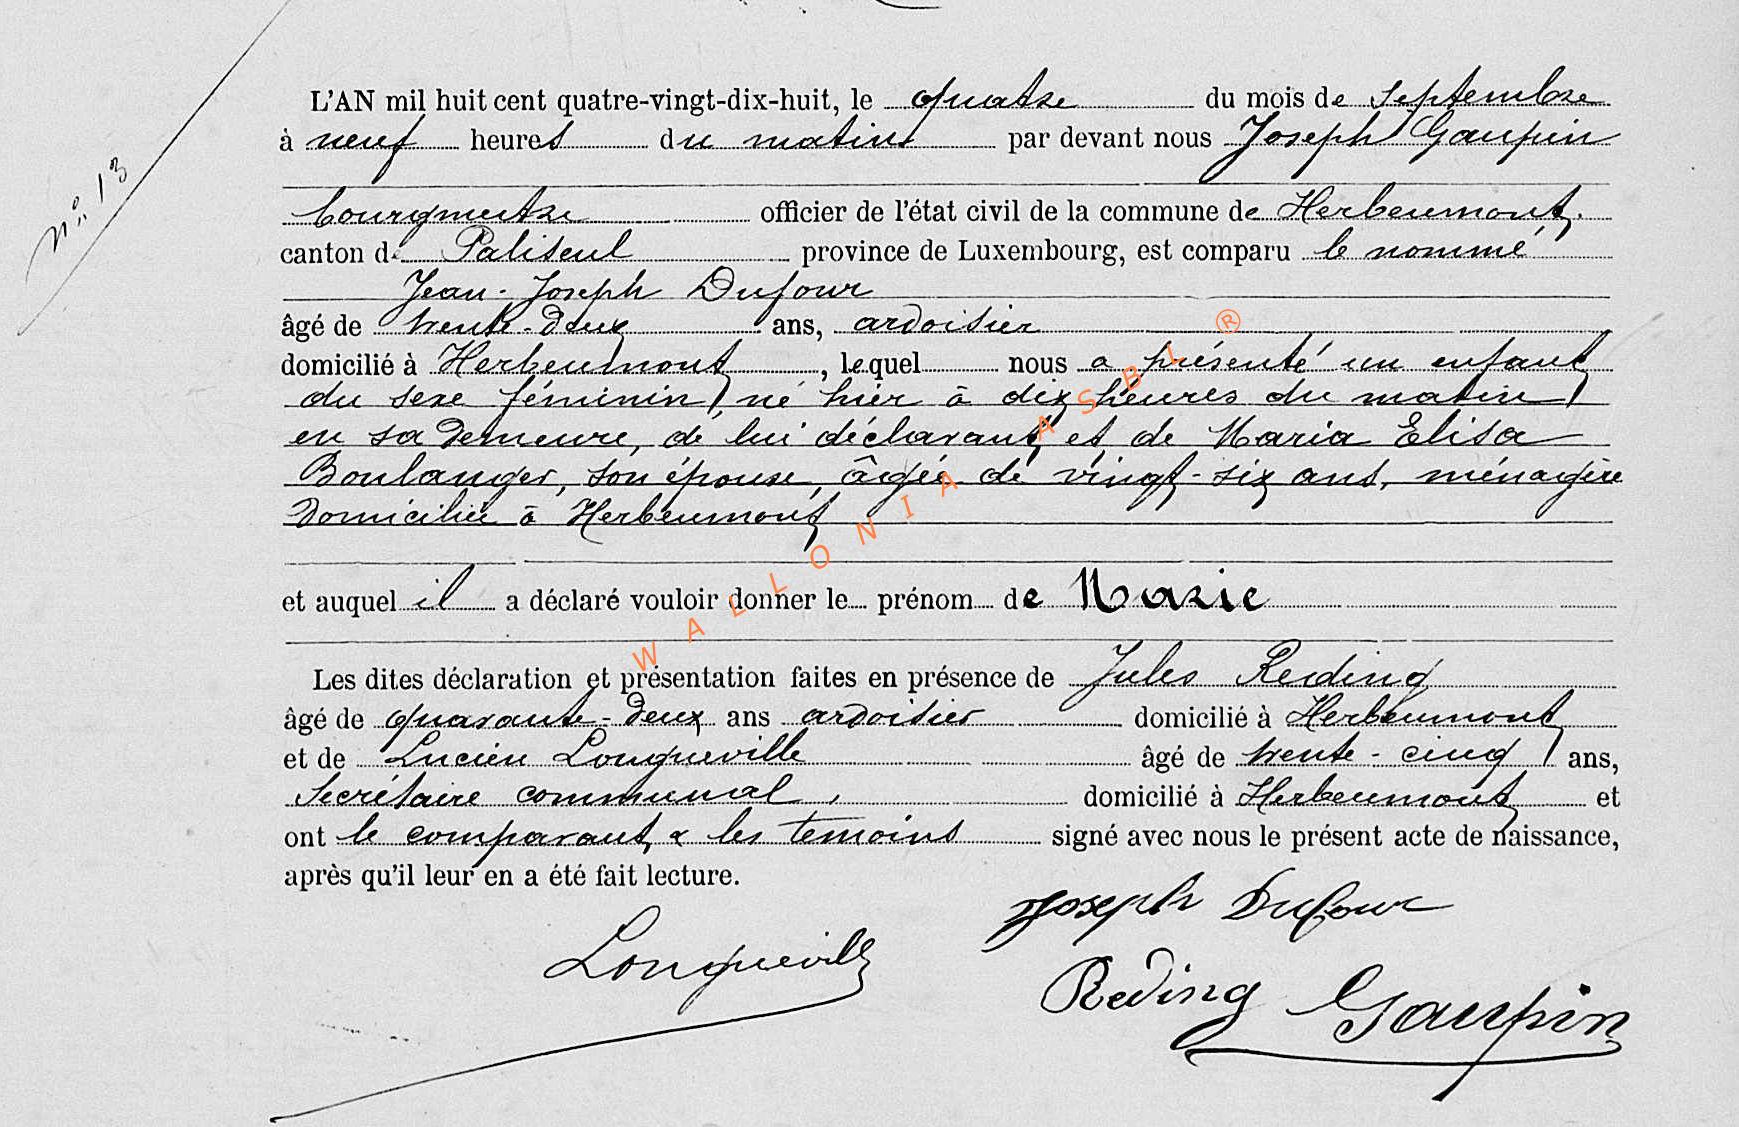 N° 13
L'AN mil huit cent quatre-vingt-dix-huit, le quatre du mois de septembre
à neuf heures du matin par devant nous Joseph Gaupin
bourgmestre officier de l'état civil de la commune de Herbeumont,
canton de Paliseul province de Luxembourg, est comparu le nommé
Jean-Joseph Dufour
âgé de trente-deux ans, ardoisier
domicilié à Herbeumont, lequel nous a présenté un enfant
du sexe féminin, né hier à dix heures du matin,
en sa demeure, de lui déclarant, et de Maria Elisa
Boulanger, son épouse, âgée de vingt-six ans, ménagère
domiciliée à Herbeumont
et auquel il a déclaré vouloir donner le prénom de Marie
Les dites déclaration et présentation faites en présence de Jules Reding
âgé de quarante-deux ans ardoisier domicilié à Herbeumont
et de Lucien Longueville âgé de trente-cinq ans,
Secrétaire communal, domicilié à Herbeumont et
ont le comparant & les temoins signé avec nous le présent acte de naissance,
après qu'il leur en a été fait lecture.
Joseph Dufour
Longueville
Reding Gaupin
WALLONIA ASBL ®